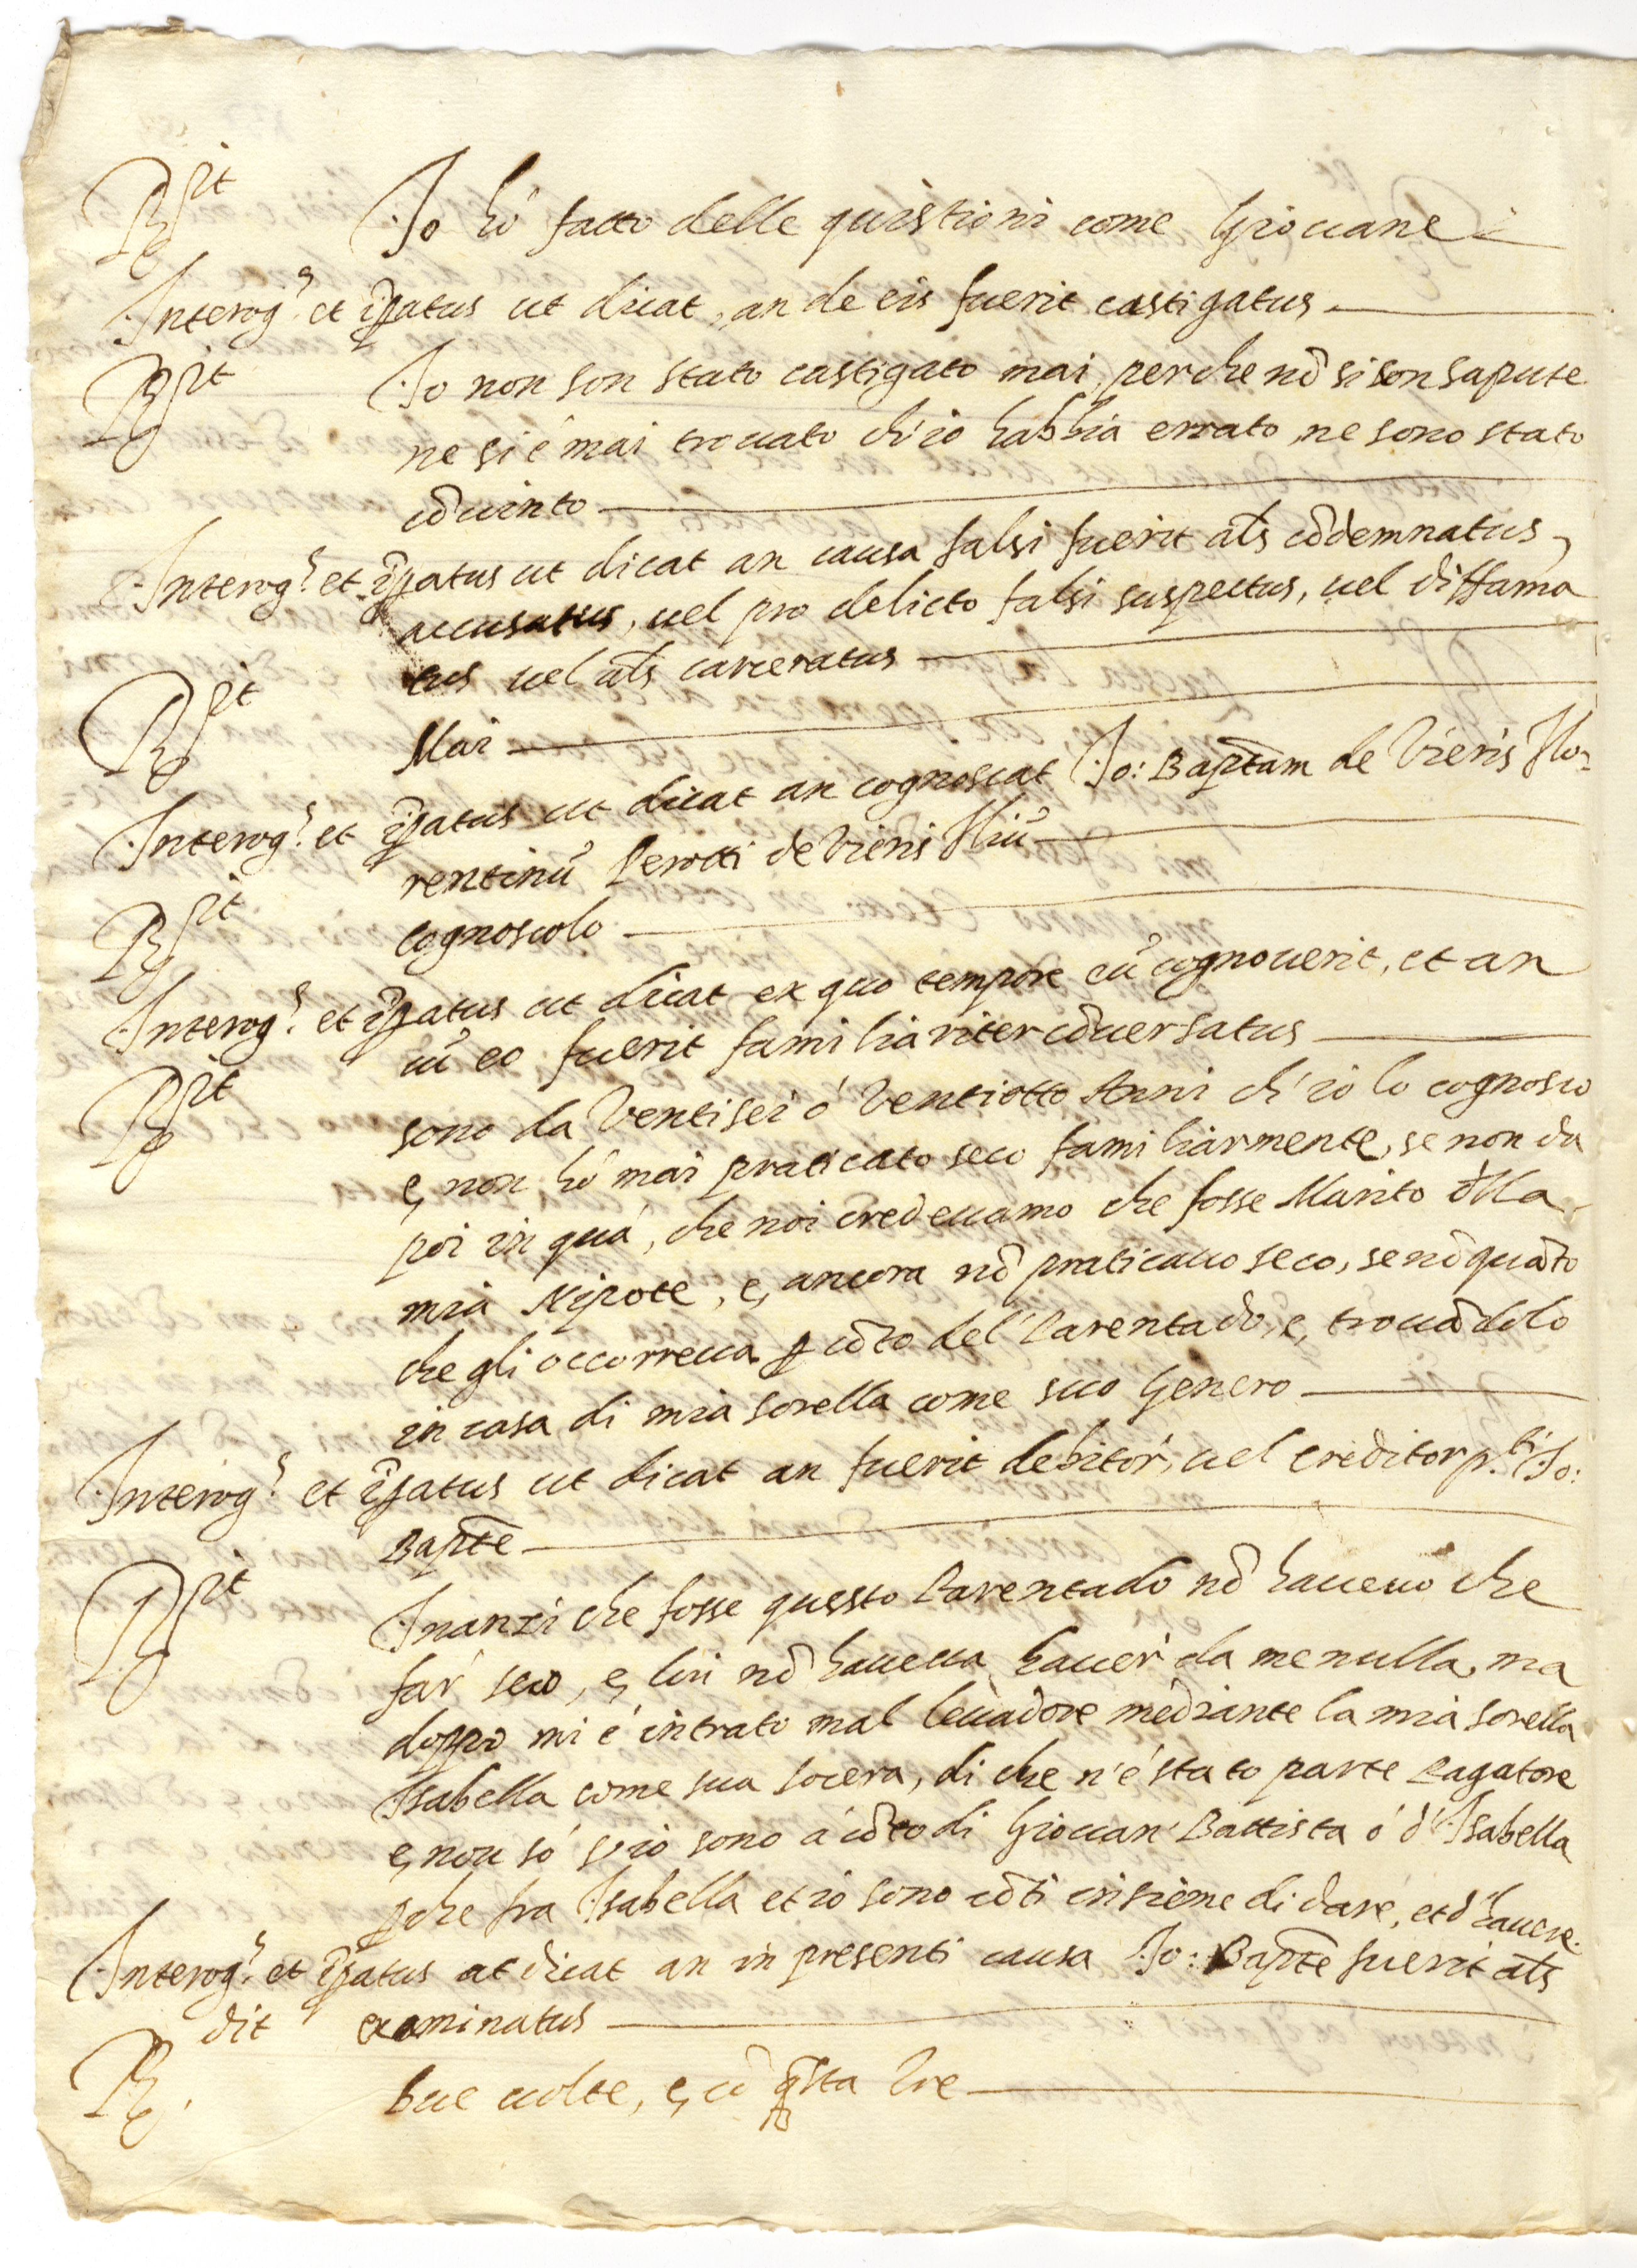 Rspt Io hó fatto delle quistioni come Giouane
Interog.s et iſpatus ut dicat, an de eis fuerit castigatus
Rspt Io non son stato castigato mai, perche nō si son sapute
ne si é mai trouato ch'io habbia errato, ne sono stato
cōuinto
Interog.s et iſpatus ut dicat an causa falsi fuerit als cōdemnatus,
accusatus, uel pro delicto falsi suspectus, uel diffama
tus uel als carceratus
Rspt Mai
Interog.s et iſpatus ut dicat an cognoscat Io: Baptam de Vieris Flo-
rentinū Perotti de Vieris Filiū
Rspt Cognoscolo
Interog.s et iſpatus ut dicat ex quo tempore eū cognouerit, et an
cū eo fuerit familiariter cōuersatus
Rspt sono da Ventisei ó Ventiotto Anni ch'io lo cognosco
e, non hó mai praticato seco familiarmente, se non da
poi in quá, che noi credeuamo che fosse Marito d'lla
mia Nipote, e, ancora nō praticauo seco, se nō quāto
che gli occorreua p cōto del' Parentado, e, trouādolo
in casa di mia sorella come suo Genero
Interog.s et iſpatus ut dicat an fuerit debitor, uel creditor p.ti Io:
Bapte
Rspt Inanzi che fosse questo Parentado nō haueuo che
far' seco, e, lui nō haueua hauer' da me nulla, ma
doppo mi é intrato mal leuadore mediante la mia sorella
Isabella come sua socera, di che n'é stato parte Pagatore
e, non só s'io sono á cōto di Giouan' Battista ó d'Isabella
pche fra Isabella et io sono cōti insieme di dare, et d'hauere.
Interog.s et iſpatus ut dicat an in presenti causa Io: Bapte fuerit als
examinatus
Rdit Due uolte, e, cō qsta Tre